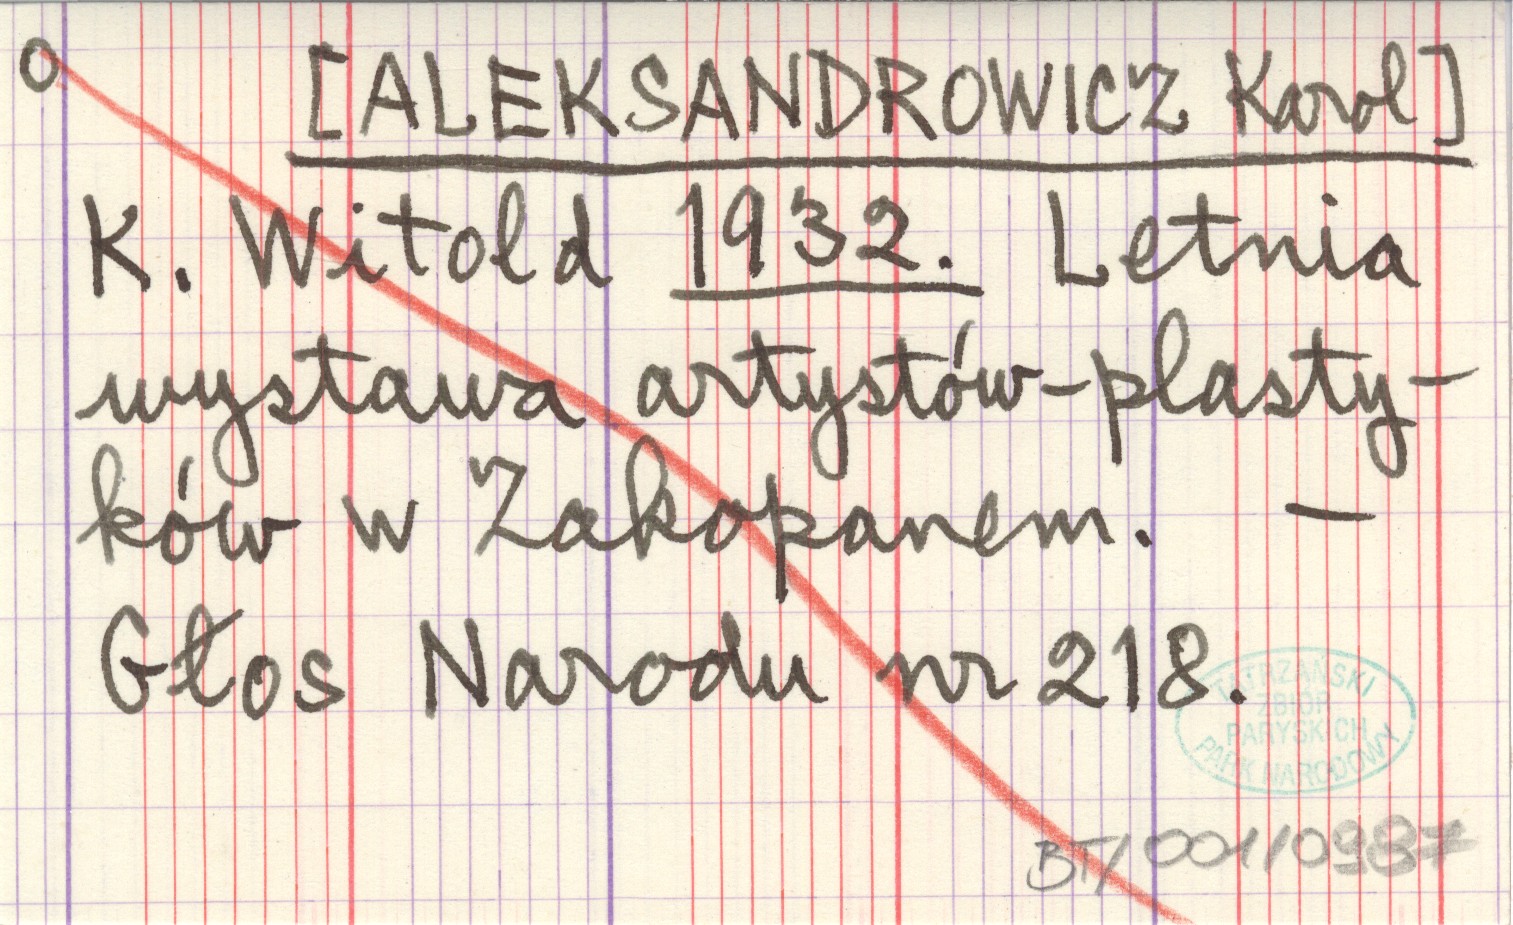 O [ALEKSANDROWICZ Karol]
K. Witold 1932. Letnia
wystawa artystów-plasty-
ków w Zakopanem. —
Głos Narodu nr 218.
TATRZAŃSKI
ZBIÓR
PARYSKICH
PARK NARODOWY
BT/001/0987